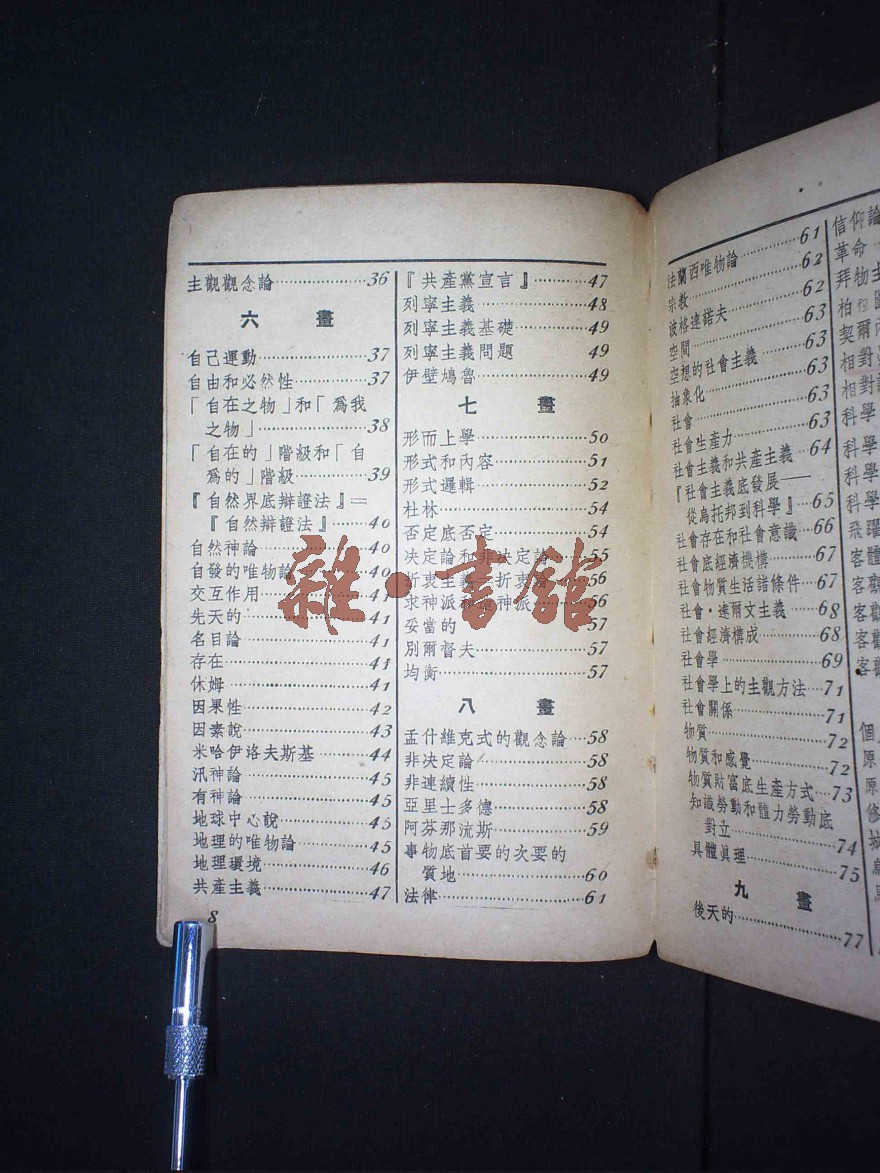 主觀觀念論…………36
六　畫
自己運動…………37
自由和必然性…………37
「自在之物」和「爲我
之物」…………38
「自在的」階級和「自
爲的」階級…………39
『自然界底辯證法』＝
『自然辯證法』……40
自然神論…………40
自發的唯物論…………40
交互作用…………41
先天的…………41
名目論…………41
存在…………41
休姆…………41
因果性…………42
因素說…………43
米哈伊洛夫斯基………44
汎神論…………45
有神論…………45
地球中心說…………45
地理的唯物論…………45
地理環境…………46
共產主義…………47
8
『共產黨宣言』……47
列寧主義…………48
列寧主義基礎…………49
列寧主義問題　49
伊壁鳩魯…………49
七　畫
形而上學…………50
形式和內容…………51
形式邏輯…………52
杜林…………54
否定底否定…………54
决定論和非决定論……55
折衷主義　折衷論……56
求神派和造神派……56
妥當的…………57
別爾督夫…………57
均衡…………57
八　畫
孟什維克式的觀念論…58
非決定論…………58
非連續性…………58
亞里士多德…………58
阿芬那流斯…………59
事物底首要的次要的
質地…………60
法律…………61
法蘭西唯物論…………61
宗教…………62
波格達諾夫…………62
空間…………63
空想的社會主義………63
抽象化…………63
社會…………63
社會生產力…………63
社會主義和共產主義…64
『社會主義底發展——
從烏托邦到科學』…65
社會存在和社會意識…66
社會底經濟機構………67
社會物質生活諸條件…67
社會・達爾文主義……68
社會經濟構成…………68
社會學…………69
社會學上的主觀方法…71
社會關係…………71
物質…………72
物質和感覺…………72
物質財富底生產方式…73
知識勞動和體力勞動底
對立…………74
具體眞理…………75
九　畫
後天的…………77
信仰論
革命
拜物主
柏
契爾
相對
相對
科學
科學
科學
科學
飛躍
客體
客觀
客觀
客觀
客觀
個
原
原
修
雜・書館